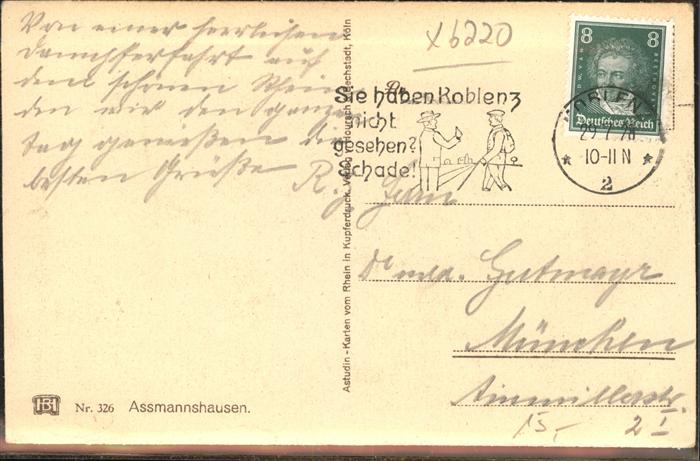 Von einer herrlichen
Dampferfahrt auf
dem schönen Rhein
den wir den ganzen
Tag genießen die
besten Grüße R.
x 6220
Sie haben Koblenz
nicht
gesehen?
Schade!
8 8
Deutsches Reich
KOBLENZ
29.7.
10-11 N
2
Astudin - Karten vom Rhein in Kupferdruck. Verlag Köln
Dr med. Gutmayr
München
Ainmillerstr.
2 I
15,-
HB
Nr. 326 Assmannshausen.